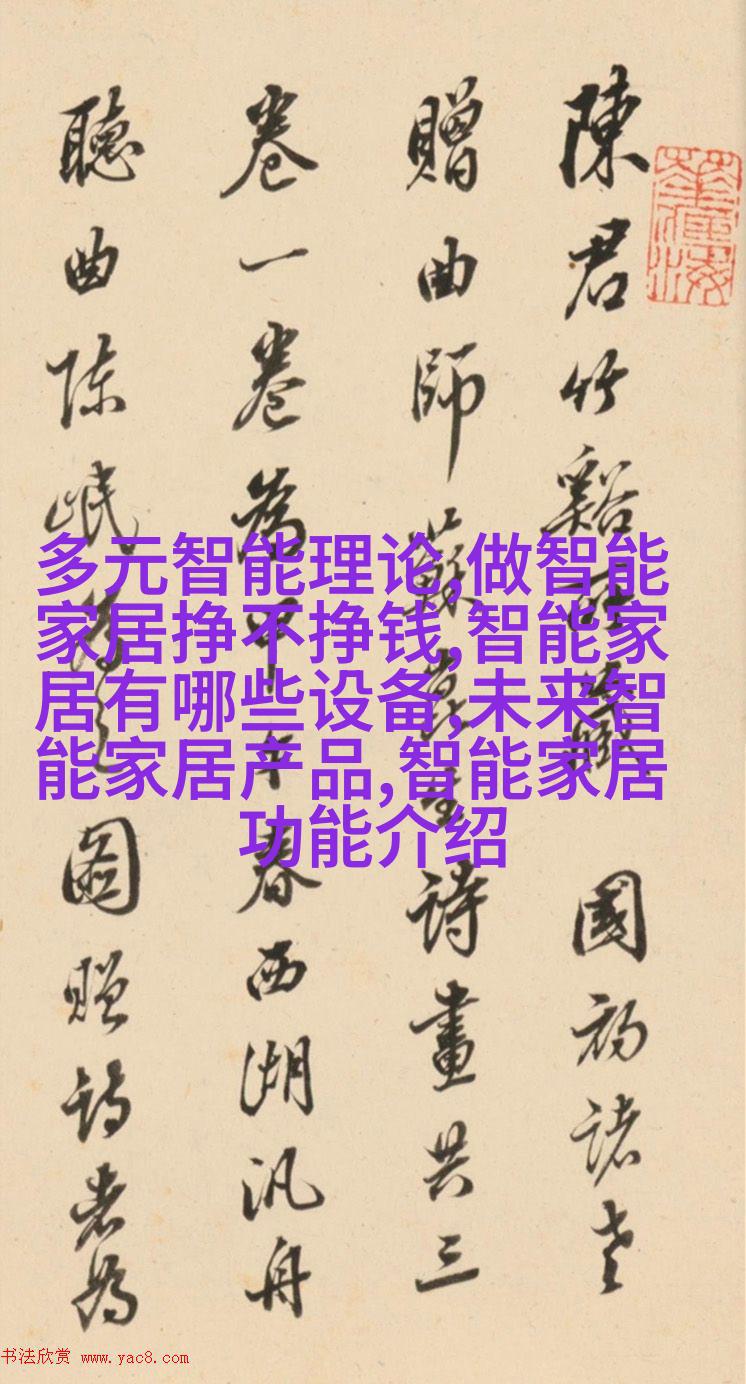 陳君竹谿所藏 國初諸老
贈曲師蘇崑生詩畫共三
卷一卷為甲午春西湖汎舟
聽曲陳岷為之圖贈詩者為
多元智能理论,做智能
家居挣不挣钱,智能家
居有哪些设备,未来智
能家居产品,智能家居
功能介绍
书法欣赏 www.yac8.com